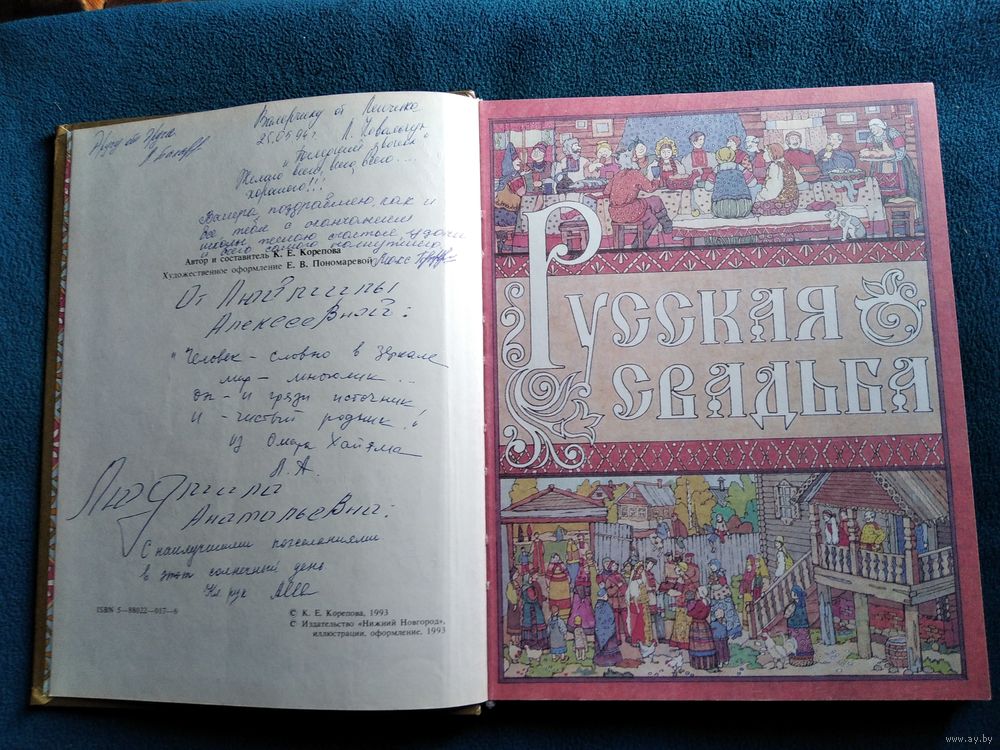 Другу от Друга
Валерчику от Леночки
25.05.94г. Л.
Желаю всего, всего, всего....
хорошего!!!
Валера, поздравляю, как и
все тебя с окончанием
школы, желаю счастья, удачи
и всего самого наилучшего
Автор и составитель К. Е. Корепова
Художественное оформление Е. В. Пономаревой
Макс
От Людмилы
Алексеевны:
"Человек – словно в зеркале
мир – многолик...
Он – и грязи источник
И – чистый родник!"
из Омара Хайяма
Л. А.
Людмила
Анатольевна:
С наилучшими пожеланиями
в этот солнечный день
Кл. рук
ISBN 5—88022—017—6
© К. Е. Корепова, 1993
© Издательство «Нижний Новгород»,
иллюстрации, оформление, 1993
Русская
свадьба
www.ay.by